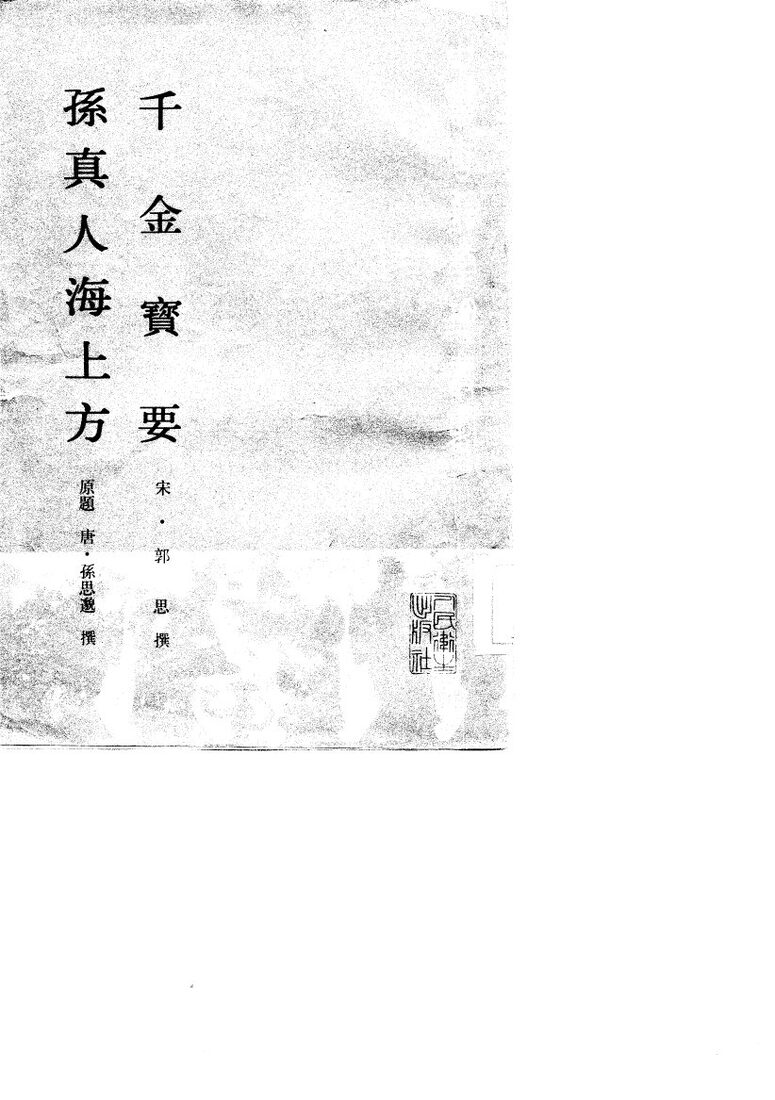 千金寳要 宋・郭思撰
孫真人海上方 原題 唐・孫思邈 撰
人民衛生
出版社